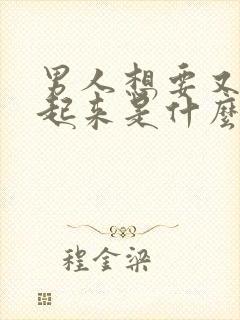 男人想要又
起来是什麼
程金梁